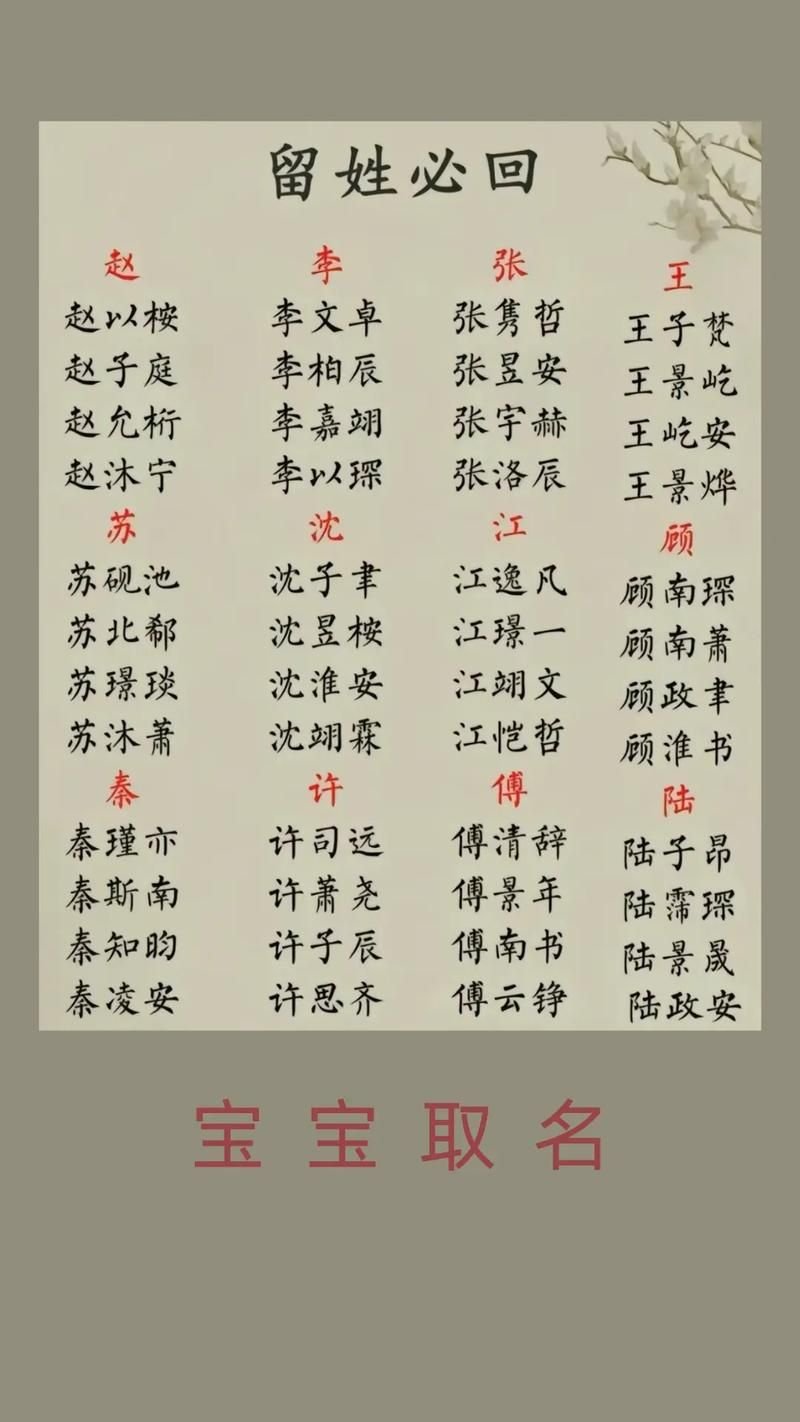 留姓必回
赵
赵以桉
赵子庭
赵允桁
赵沐宁
李
李文卓
李柏辰
李嘉翊
李以琛
张
张隽哲
张昱安
张宇赫
张洛辰
王
王子梵
王景屹
王屹安
王景烨
苏
苏砚池
苏北郗
苏璟琰
苏沐萧
沈
沈子聿
沈昱桉
沈淮安
沈翊霖
江
江逸凡
江璟一
江翊文
江恺哲
顾
顾南琛
顾南萧
顾政聿
顾淮书
秦
秦瑾亦
秦斯南
秦知昀
秦凌安
许
许司远
许萧尧
许子辰
许思齐
傅
傅清辞
傅景年
傅南书
傅云铮
陆
陆子昂
陆霈琛
陆景晟
陆政安
宝宝取名